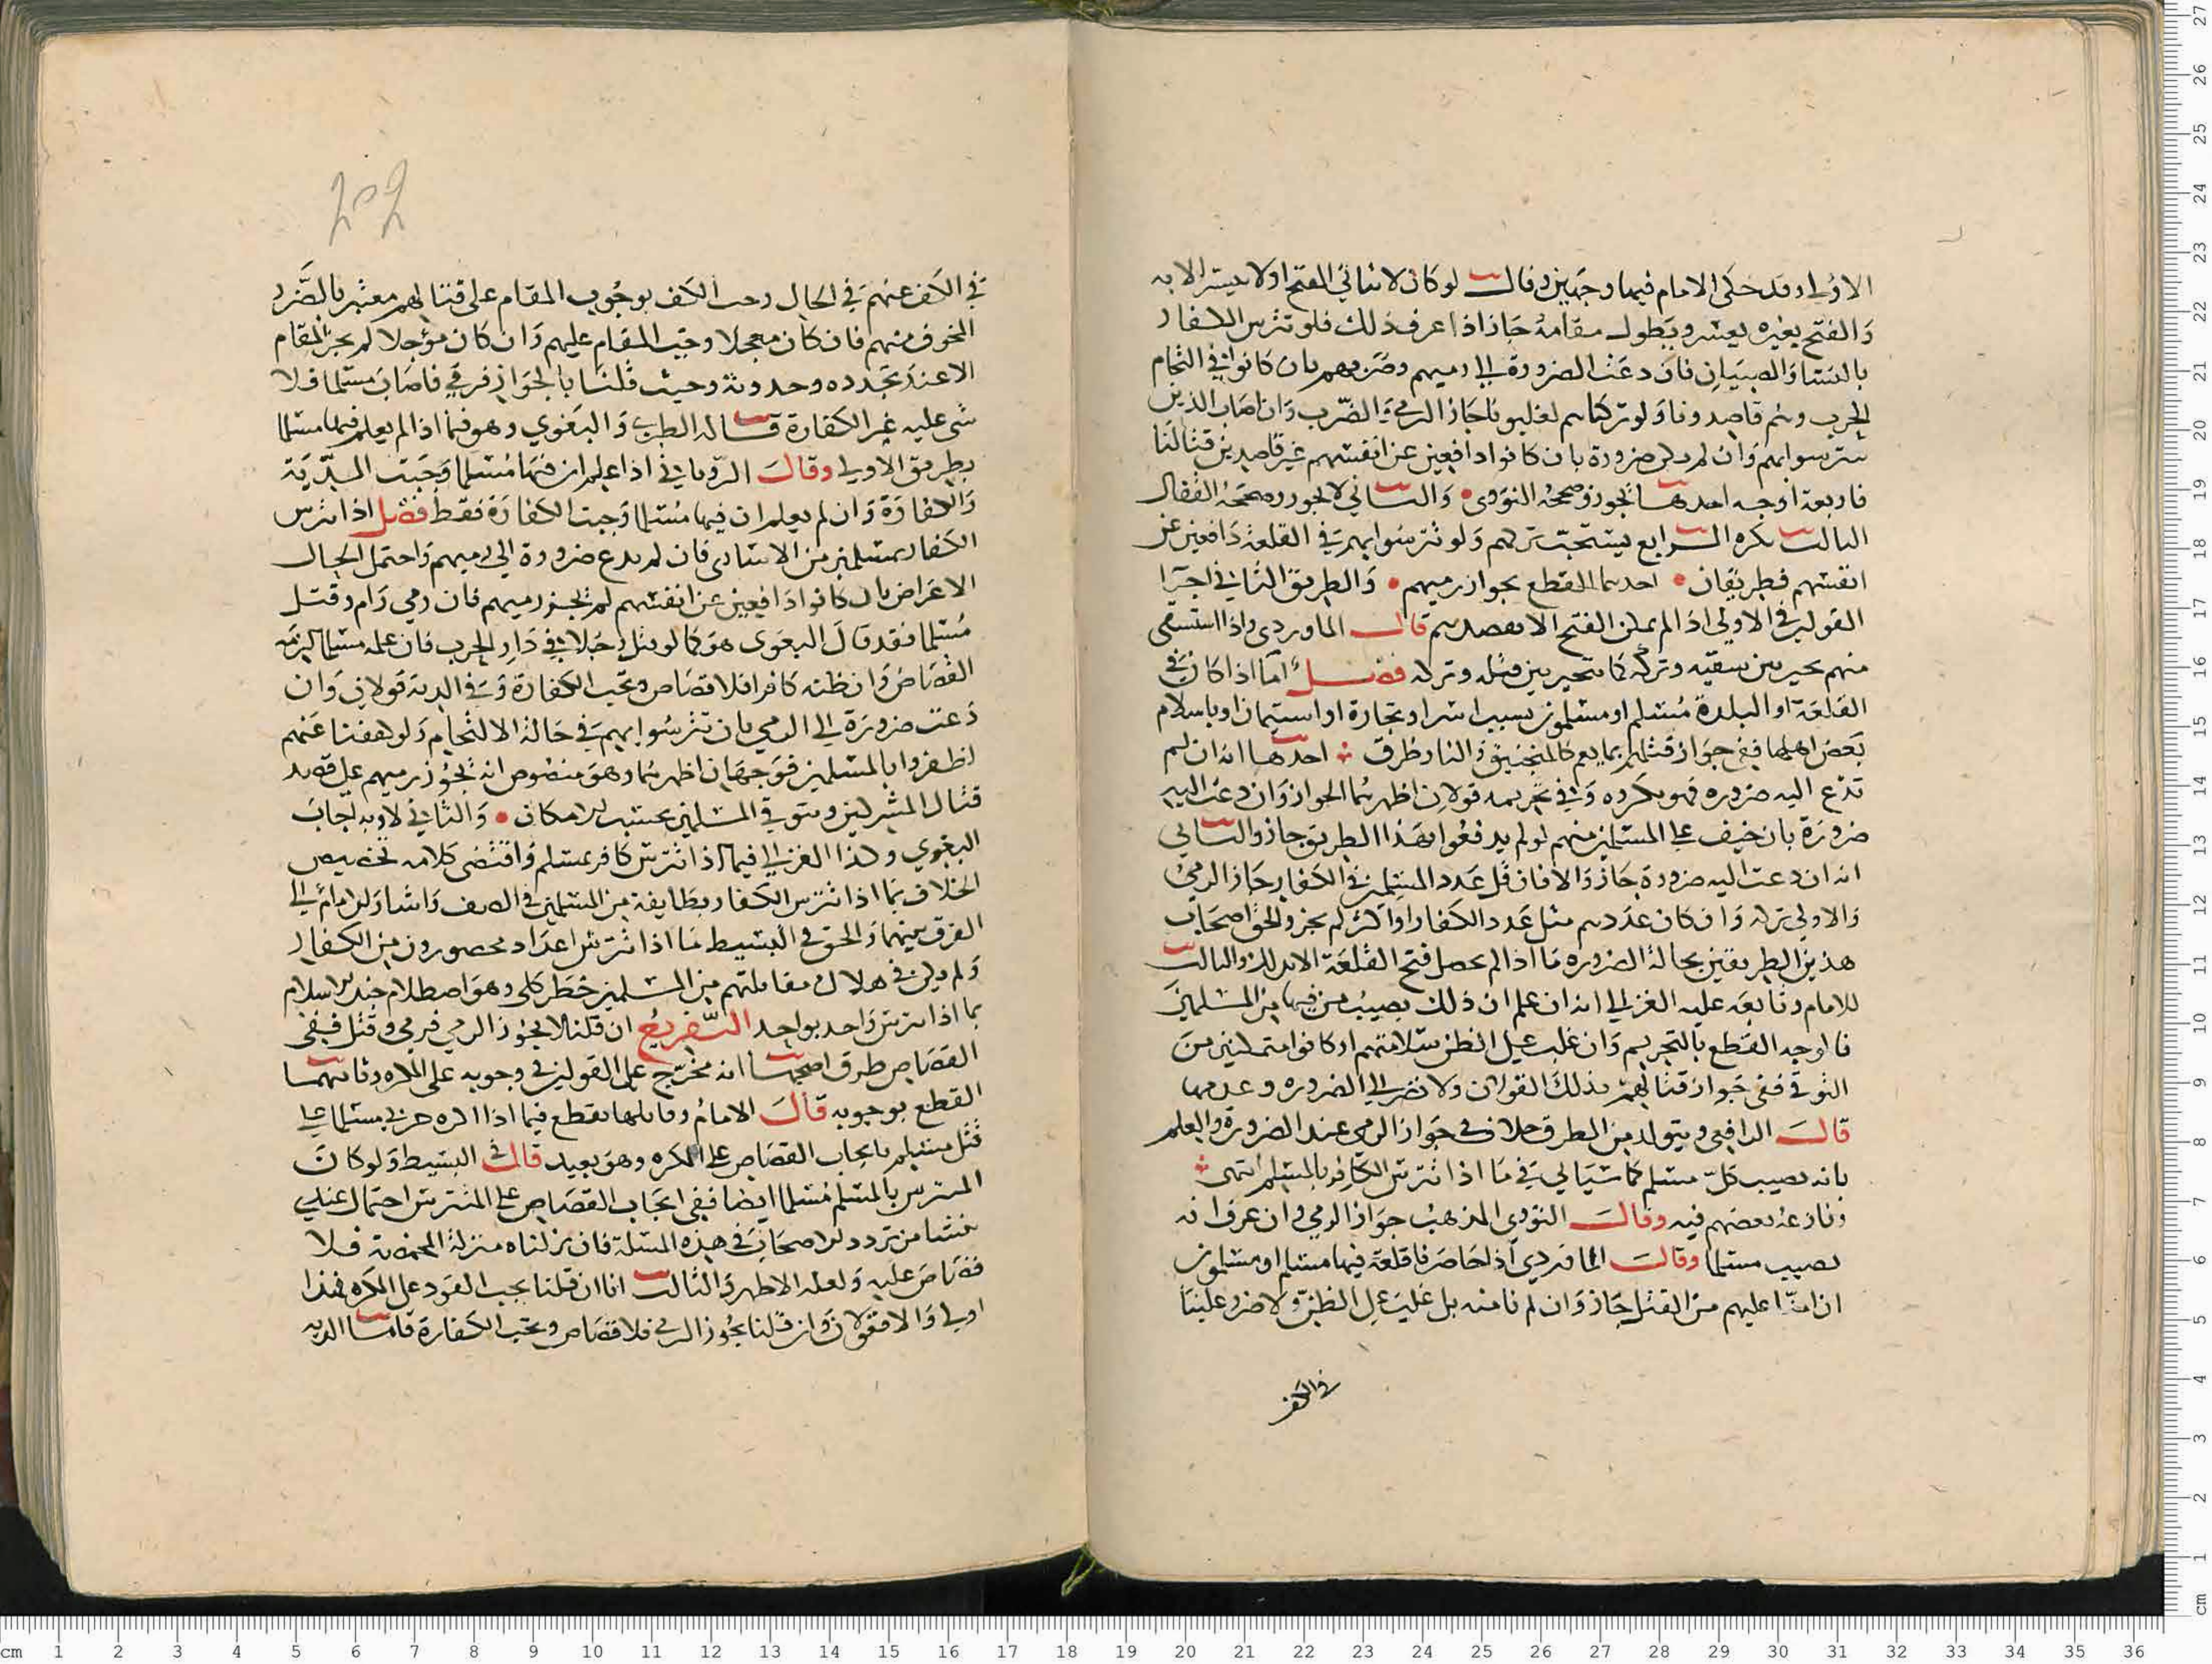 الاولى وقد حكى الامام فيها وجهين وقال لو كان لا يتاتى الفتح اولا يتيسر الا به
والفتح بغيره يعسر ويطول مقامه جاز اذا عرف ذلك فلو تترس الكفار
بالنسا والصبيان فان دعت الضرورة الى رميهم وضربهم بان كانوا في التحام
الحرب وهم قاصدونا ولو تركناهم لغلبونا جاز الرمي والضرب وان اصاب الذين
تترسوا بهم وان لم يكن ضرورة بان كانوا دافعين عن انفسهم غير قاصدين قتالنا
فاربعة اوجه احدها يجوز وصححه النووي والثاني لا يجوز وصححه القفال
الثالث يكره الرابع يستحب تركهم ولو تترسوا بهم في القلعة دافعين عن
انفسهم فطريقان احدهما القطع بجواز رميهم والطريق الثاني اجرا
القولين في الاولى اذا لم يمكن الفتح الا بقصدهم قال الماوردي واذا استسقى
منهم يخير بين سقيه وتركه كما يتخير بين قتله وتركه فصل اما اذا كان في
القلعة او البلدة مسلم او مسلمون بسبب اسر او تجارة او استيمان او باسلام
بعض اهلها ففي جواز قتلهم بما يعم كالمنجنيق والنار طرق احدها انه ان لم
تدع اليه ضروره فهو مكروه وفي تحريمه قولان اظهرهما الجواز وان دعت اليه
ضرورة بان خيف على المسلمين منهم لو لم يدفعوا بهذا الطريق جاز والثاني
انه ان دعت اليه ضرورة جاز والا فان قل عدد المسلمين في الكفار جاز الرمي
والاولى تركه وان كان عددهم مثل عدد الكفار او اكثر لم يجز والحق اصحاب
هذين الطريقين بحالة الضروره ما اذا لم يحصل فتح القلعة الا بذلك والثالث
للامام وتابعه عليه الغزالي انه ان علم ان ذلك يصيب من فيها من المسلمين
فاوجه القطع بالتحريم وان غلب على الظن سلامتهم او كانوا متمكنين من
التوقي ففي جواز قتالهم بذلك القولان ولا نظر الى الضروره وعدمها
قال الرافعي ويتولد من الطرق خلاف في جواز الرمي عند الضرورة والعلم
بانه يصيب كل مسلم كما سياتي في ما اذا تترس الكافر بالمسلم انتهى
ونازعه بعضهم فيه وقال النووي المذهب جواز الرمي وان عرف انه
يصيب مسلما وقال الماوردي اذا حاصرنا قلعة فيها مسلم او مسلمون
ان امنا عليهم من القتل جاز وان لم نامنه بل غلب على الظن ولا ضرر علينا
في الكف
في الكف عنهم في الحال وجب الكف بوجوب المقام على قتالهم معتبر بالضرر
المخوف منهم فان كان معجلا وجب المقام عليهم وان كان مؤجلا لم يجز المقام
الا عند تجدده وحدوثه وحيث قلنا بالجواز فرمي فاصاب مسلما فلا
شي عليه غير الكفارة قاله الطبري والبغوي وهو فيما اذا لم يعلم فيها مسلما
بطريق الاولى وقال الروياني اذا علم ان فيها مسلما وجبت الدية
والكفارة وان لم يعلم ان فيها مسلما وجبت الكفارة فقط فصل اذا تترس
الكفار بمسلمين من الاسارى فان لم يدع ضرورة الى رميهم واحتمل الحال
الاعراض بان كانوا دافعين عن انفسهم لم يجز رميهم فان رمي رام وقتل
مسلما فقد قال البغوي هو كما لو قتل رجلا في دار الحرب فان علمه مسلما لزمه
القصاص وان ظنه كافرا فلا قصاص وتجب الكفارة وفي الدية قولان وان
دعت ضرورة الى الرمي بان تترسوا بهم في حالة الالتحام ولو كففنا عنهم
لظفروا بالمسلمين فوجهان اظهرهما وهو منصوص انه يجوز رميهم على قصد
قتال المشركين ويتوقي المسلمين بحسب الامكان والثاني لا وبه اجاب
البغوي وكذا الغزالي فيما اذا تترس كافر بمسلم واقتضى كلامه تخصيص
الخلاف بما اذا تترس الكفار بطايفة من المسلمين في الصف واشار الامام الى
الفرق بينهما والحق في البسيط ما اذا تترس اعداد محصورون من الكفار
ولم يكن في هلاك مقابلتهم من المسلمين خطر كلي وهو اصطلام جند الاسلام
بما اذا تترس واحد بواحد التفريع ان قلنا لا يجوز الرمي فرمي وقتل ففي
القصاص طرق اصحها انه مخرج على القولين في وجوبه على المكره وثانيهما
القطع بوجوبه قال الامام وقابلها بقطع فيما اذا اكره حربي مسلما على
قتل مسلم بايجاب القصاص على المكره وهو بعيد قال في البسيط ولو كان
المتترس بالمسلم مسلما ايضا ففي ايجاب القصاص على المتترس احتمال عندي
منشا من تردد الاصحاب في هذه المسئلة فان نزلناه منزلة المخمصة فلا
قصاص عليه ولعله الاظهر والثالث انا ان قلنا يجب القود على المكره فهذا
اولى والا فقولان وان قلنا يجوز الرمي فلا قصاص وتجب الكفارة فاما الدية